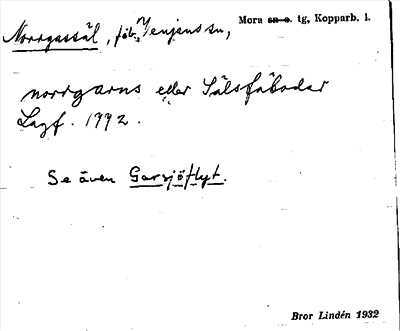 Norrgassäl, fäb. Venjans sn, Mora sn o. tg, Kopparb. l.
norrgarns eller Sälsfäbodar
Lagf. 1992.
Se även Garsjöflyt.
Bror Lindén 1932